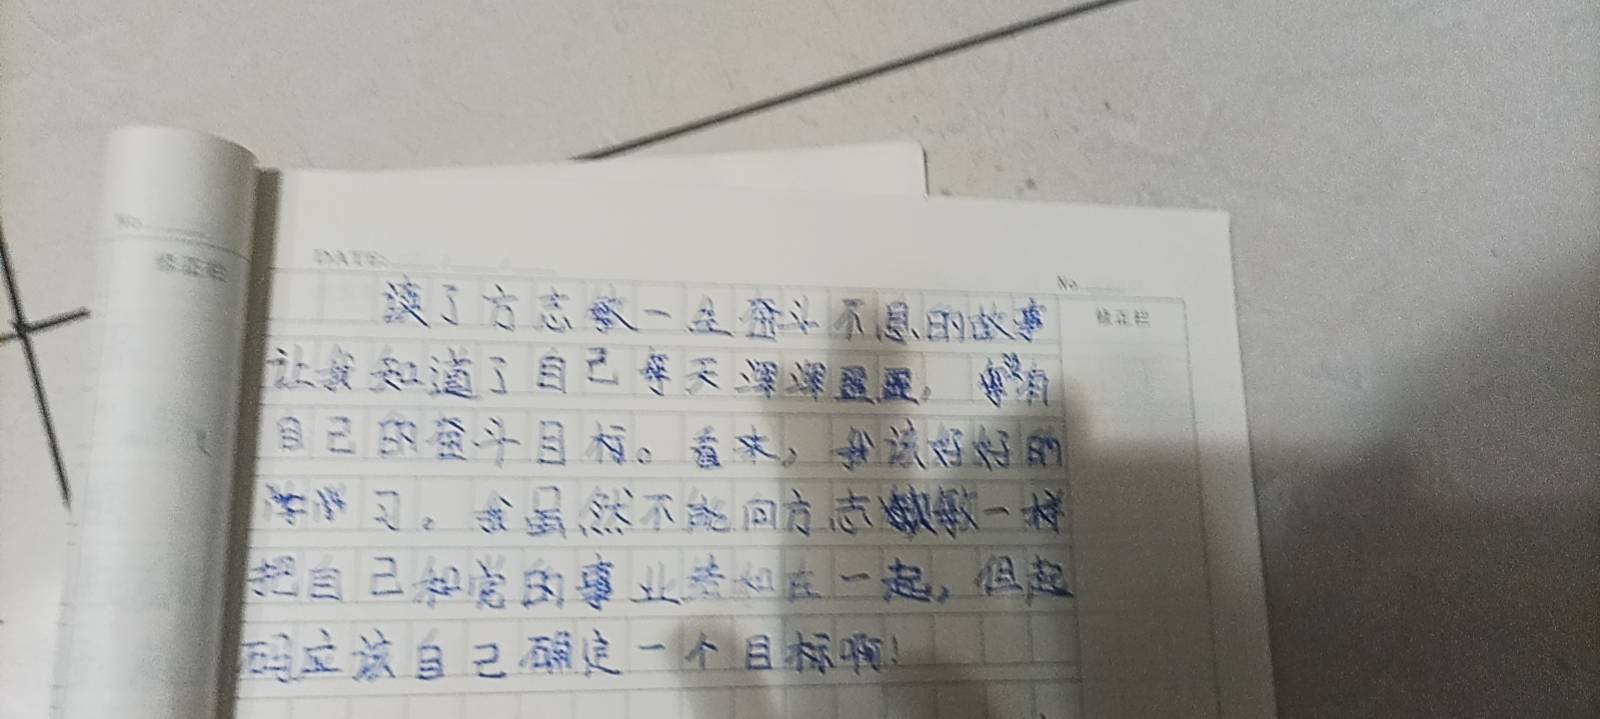 No
修正栏
DATE
No
修正栏
读了方志敏一生奋斗不息的故事
让我知道了自己每天浑浑噩噩,没有
自己的奋斗目标。看来,我该好好的
学习。我虽然不能向方志敏一样
把自己和党的事业结和在一起,但起
码应该自己确定一个目标啊!